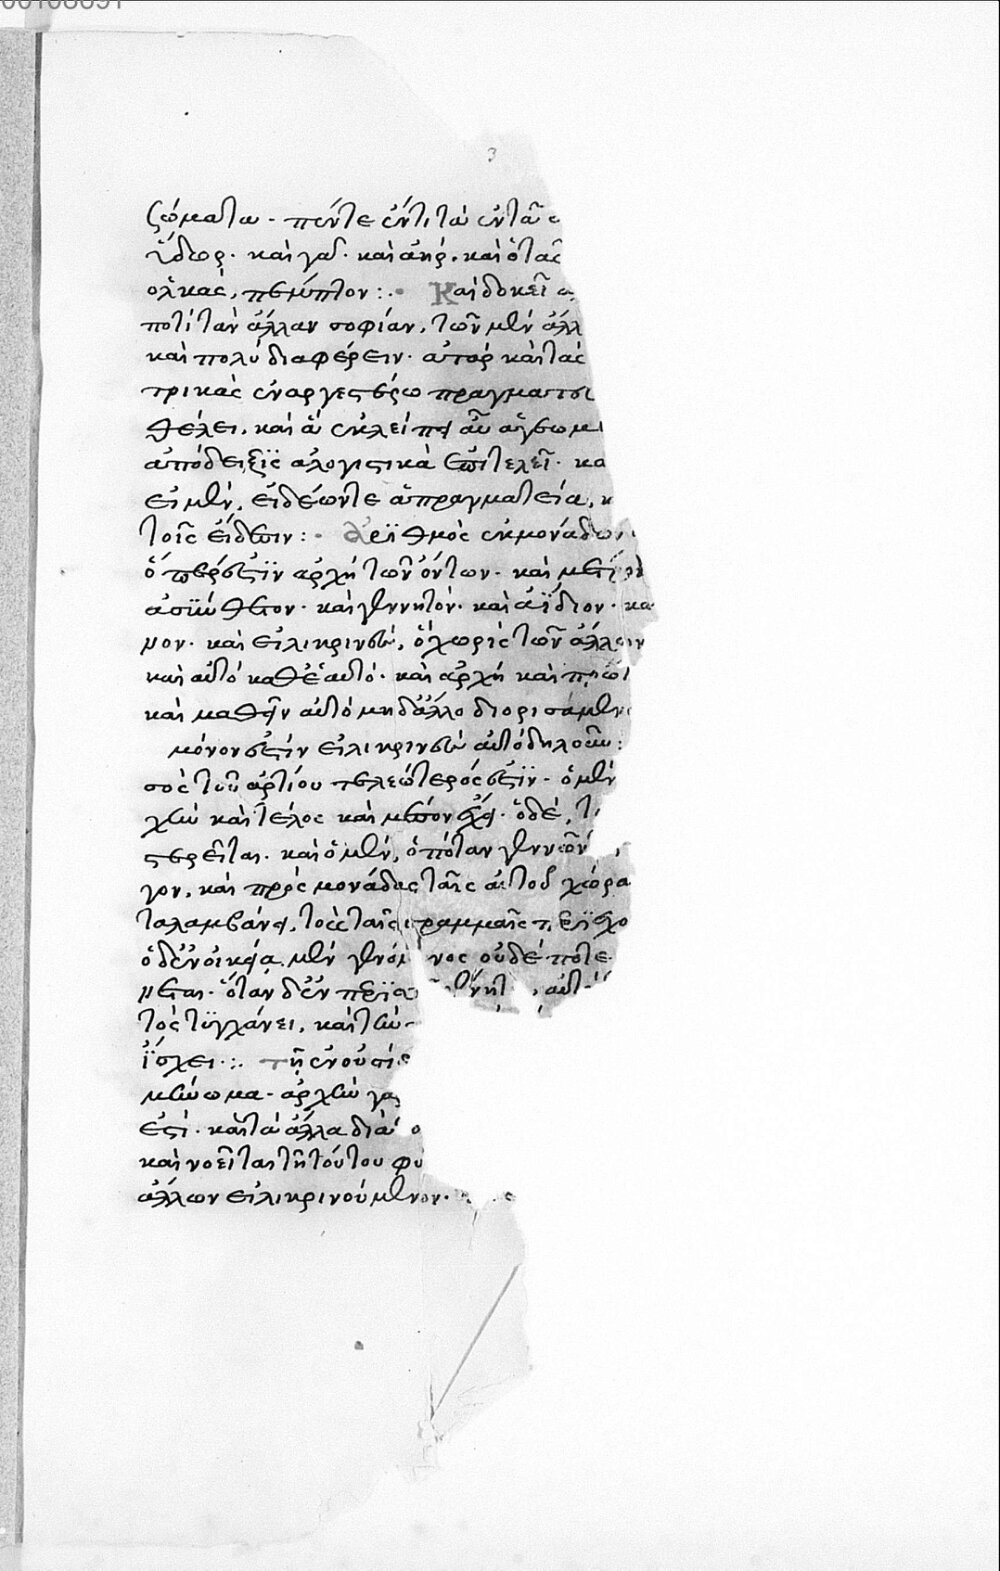 ζώματα · πέντε ἐντί τὰ ἐν τᾶ
ὕδωρ · καὶ γᾶ · καὶ ἀήρ, καὶ ὁ τᾶς
ὁλκὰς, πέμπτον : · Καὶ δοκεῖ ἁ
ποτὶ τὰν ἄλλαν σοφίαν, τῶν μὲν ἀλλ
καὶ πολύ διαφέρειν · ἀτὰρ καὶ τὰς
τρικὰς ἐναργεστέρω πραγματε
θέλει, καὶ ἃ ἐκλείπει αὖ ἁ γεωμε
ἀποδείξῑς ἁ λογιστικὰ ἐπιτελεῖ · κα
εἰ μὲν, εἰδέων τε ἁ πραγματεία, κ
τοῖς εἴδεσιν : · Ἀρϊθμὸς ἐκ μονάδων
ὅπέρ ἐστῒν ἀρχὴ τῶν ὄντων · καὶ μέτρον
ἀσύνθετον · καὶ γεννητόν · καὶ ἀΐδιον · κα
μον · καὶ εἰλικρινὲς, ὃ χωρὶς τῶν ἄλλων
καὶ αὐτὸ καθ' ἑαυτό · καὶ ἀρχὴ καὶ πρῶτ
καὶ μαθεῖν αὐτὸ μηδ' ἄλλο διορισάμεν
μόνον ἐστίν εἰλικρινὲς αὐτὸ δηλοῦν :
σὸς τοῦ ἀρτίου τελεώτερός ἐστῒν · ὁ μὲν
χὴν καὶ τέλος καὶ μέσον ἔχει · ὁ δὲ, τ
στερεῖται · καὶ ὁ μὲν, ὁπόταν γεννῶν
γον, καὶ πρὸς μονάδας ταῖς αὐτοῦ χώρα
ταλαμβάνει, τοὲς ταῖς γραμμαῖς περϊεχο
ὁ δ' ἐν οἰκεία μὲν γενόμενος οὐδέποτε
μεται · ὅταν δ' ἐν περϊσ
τὸς τϋγχάνει, καὶ τὴν
ἴσχει : · τῆ ἐνούσης
μνύωμα · ἀρχὴν γὰρ
ἐστὶ · καὶ τὰ ἄλλα διὰ
καὶ νοεῖται τῆ τούτου φύ
ἄλλων εἰλικρινούμενον ·